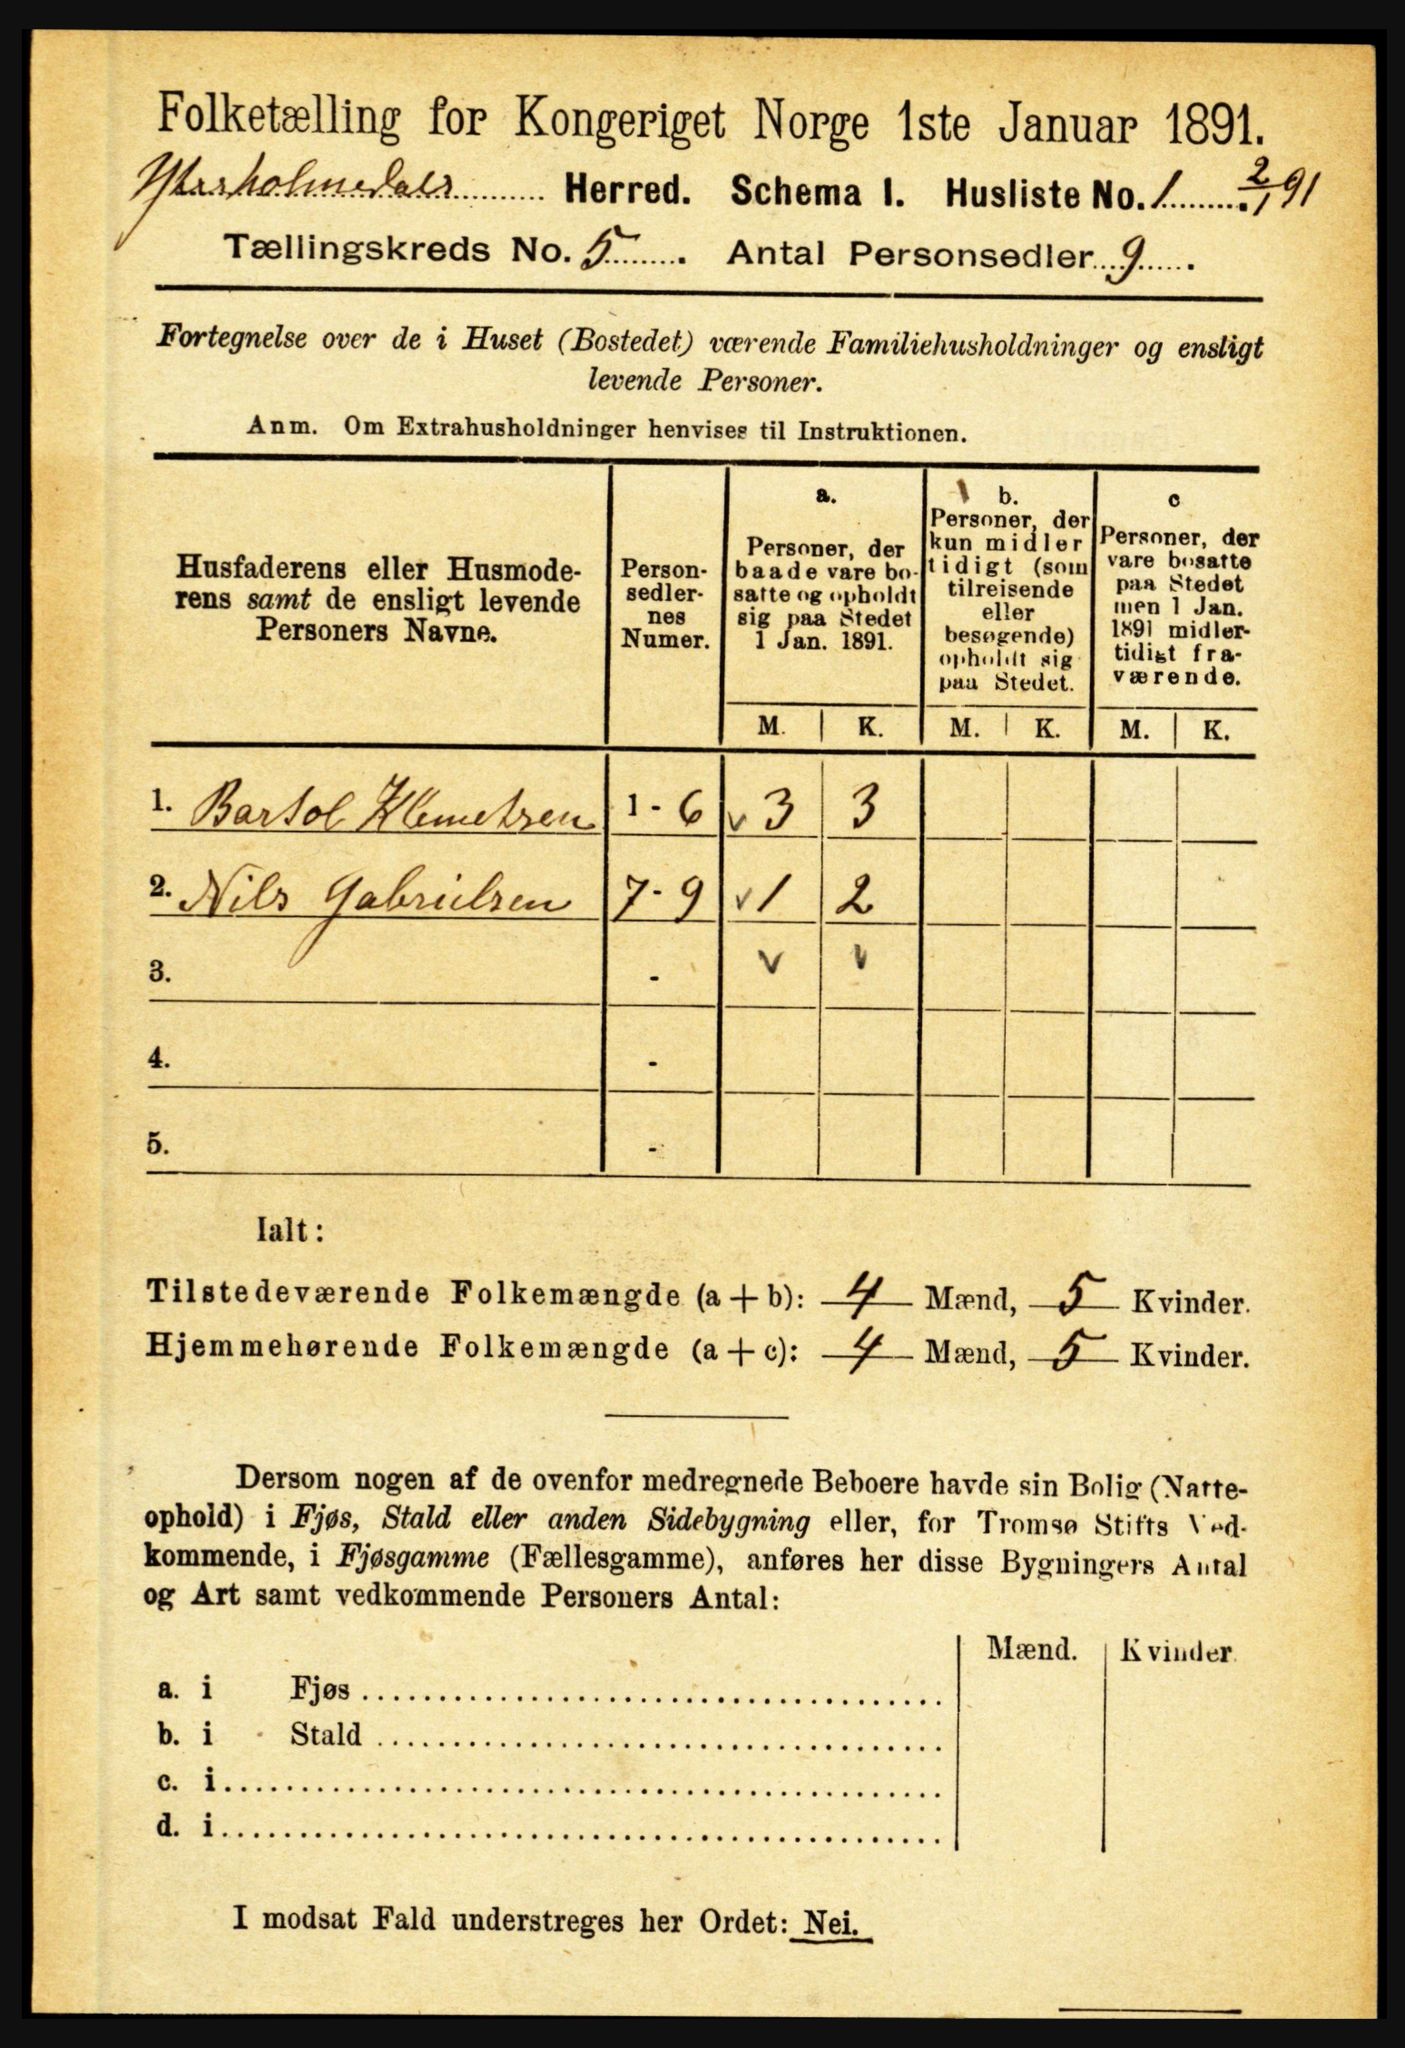 Folketælling for Kongeriget Norge 1ste Januar 1891.
Ytterholmedals Herred. Schema I. Husliste No. 1 2/1 91
Tællingskreds No. 5. Antal Personsedler 9.
Fortegnelse over de i Huset (Bostedet) værende Familiehusholdninger og ensligt
levende Personer.
Anm. Om Extrahusholdninger henvises til Instruktionen.
Husfaderens eller Husmode-
rens samt de ensligt levende
Personers Navne.
Person-
sedler-
nes
Numer.
a.
Personer, der
baade vare bo-
satte og opholdt
sig paa Stedet
1 Jan. 1891.
b.
Personer, der
kun midler
tidigt (som
tilreisende
eller
besøgende)
opholdt sig
paa Stedet.
c
Personer, der
vare bosatte
paa Stedet
men 1 Jan.
1891 midler-
tidigt fra-
værende.
M. K. M. K. M. K.
1. Bartol Klemetsen 1 - 6 v 3 3
2. Nils Gabrielsen 7 - 9 v 1 2
3. - v v
4. -
5. -
Ialt:
Tilstedeværende Folkemængde (a + b): 4 Mænd, 5 Kvinder.
Hjemmehørende Folkemængde (a + c): 4 Mænd, 5 Kvinder.
Dersom nogen af de ovenfor medregnede Beboere havde sin Bolig (Natte-
ophold) i Fjøs, Stald eller anden Sidebygning eller, for Tromsø Stifts Ved-
kommende, i Fjøsgamme (Fællesgamme), anføres her disse Bygningers Antal
og Art samt vedkommende Personers Antal:
Mænd. Kvinder
a. i Fjøs
b. i Stald
c. i
d. i
I modsat Fald understreges her Ordet: Nei.